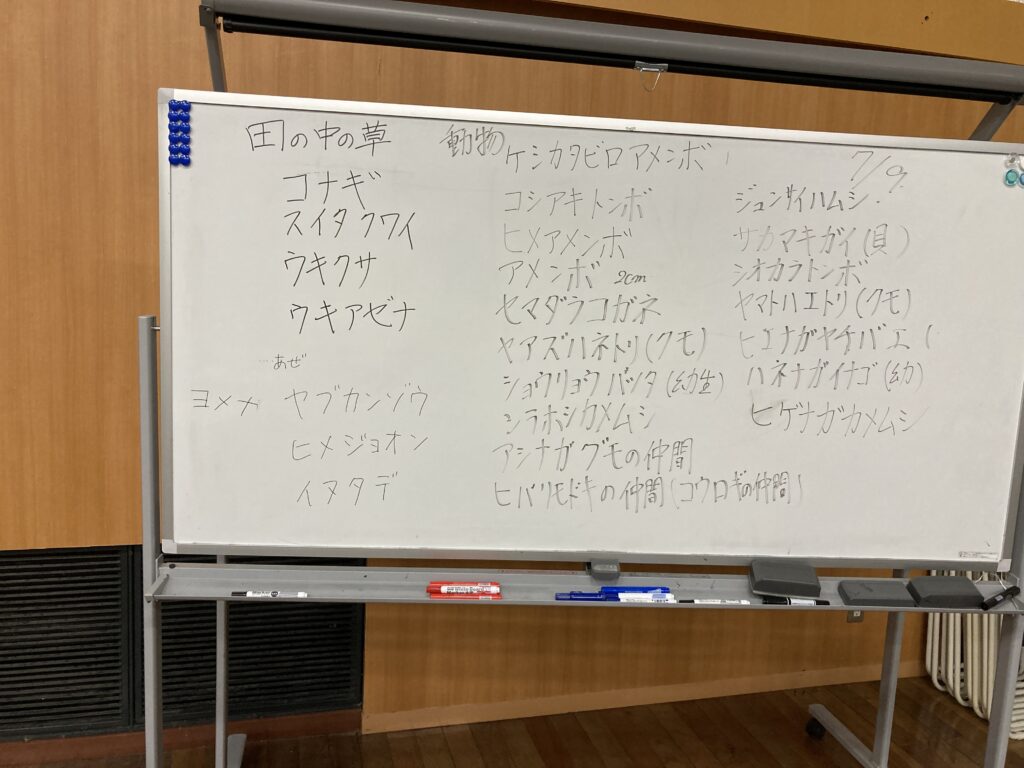 田の中の草
コナギ
スイタクワイ
ウキクサ
ウキアゼナ
…あぜ
ヨメナ ヤブカンゾウ
ヒメジョオン
イヌタデ
動物
ケシカタビロアメンボ
コシアキトンボ
ヒメアメンボ
アメンボ 2cm
セマダラコガネ
ヤアズハネトリ(クモ)
ショウリョウバッタ(幼生)
シラホシカメムシ
アシナガグモの仲間
ヒバリモドキの仲間(コウロギの仲間)
7/9.
ジュンサイハムシ.
サカマキガイ(貝)
シオカラトンボ
ヤマトハエトリ(クモ)
ヒゲナガヤチバエ(
ハネナガイナゴ(幼)
ヒゲナガカメムシ